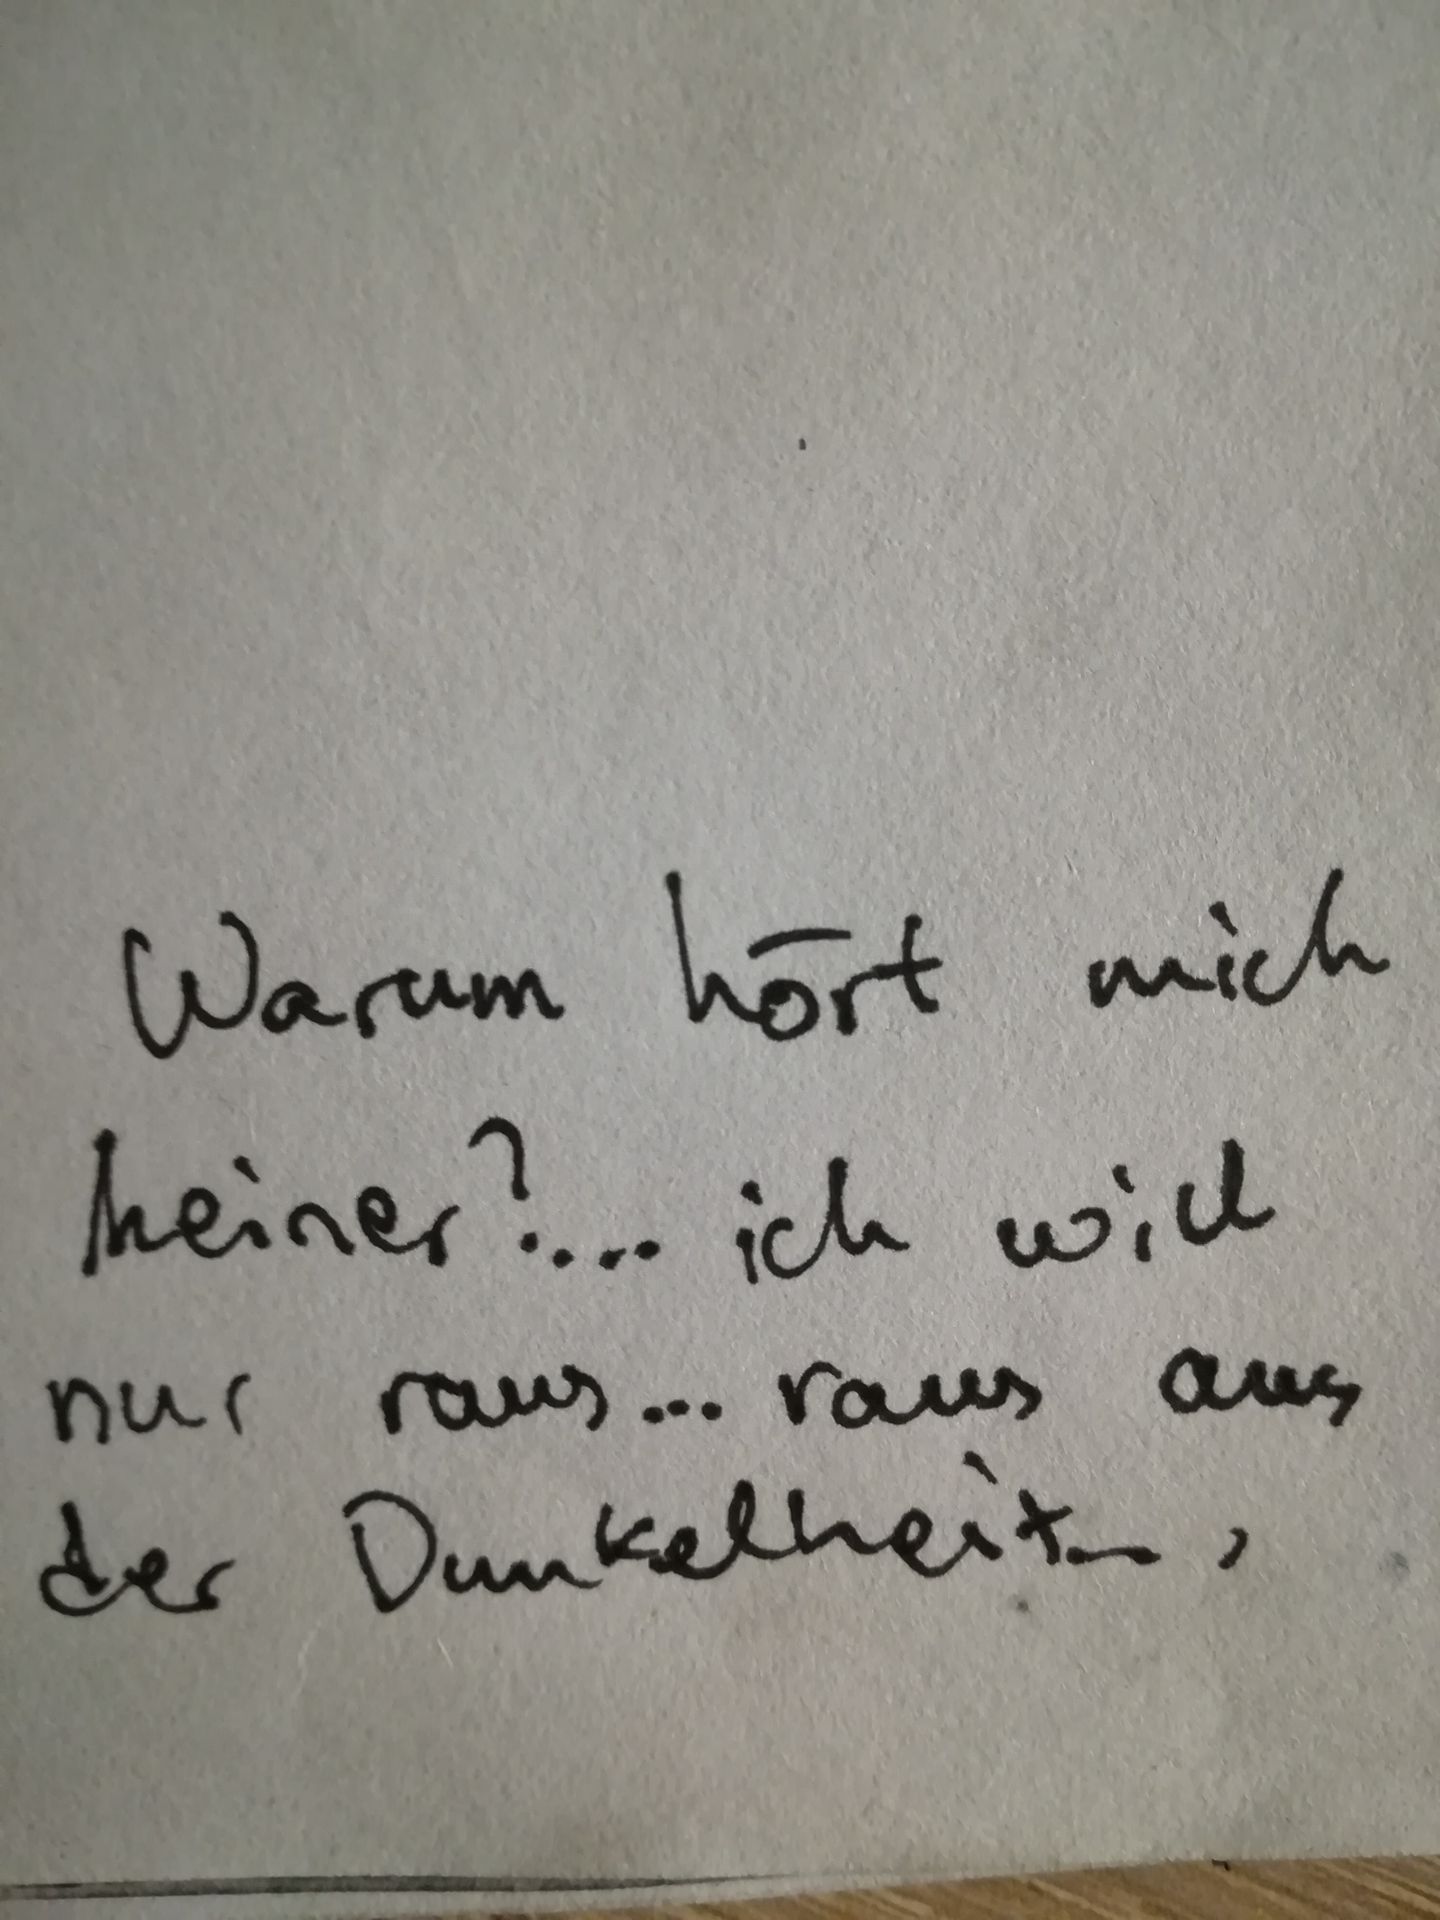 Warum hört mich
keiner?... ich will
nur raus... raus aus
der Dunkelheit,